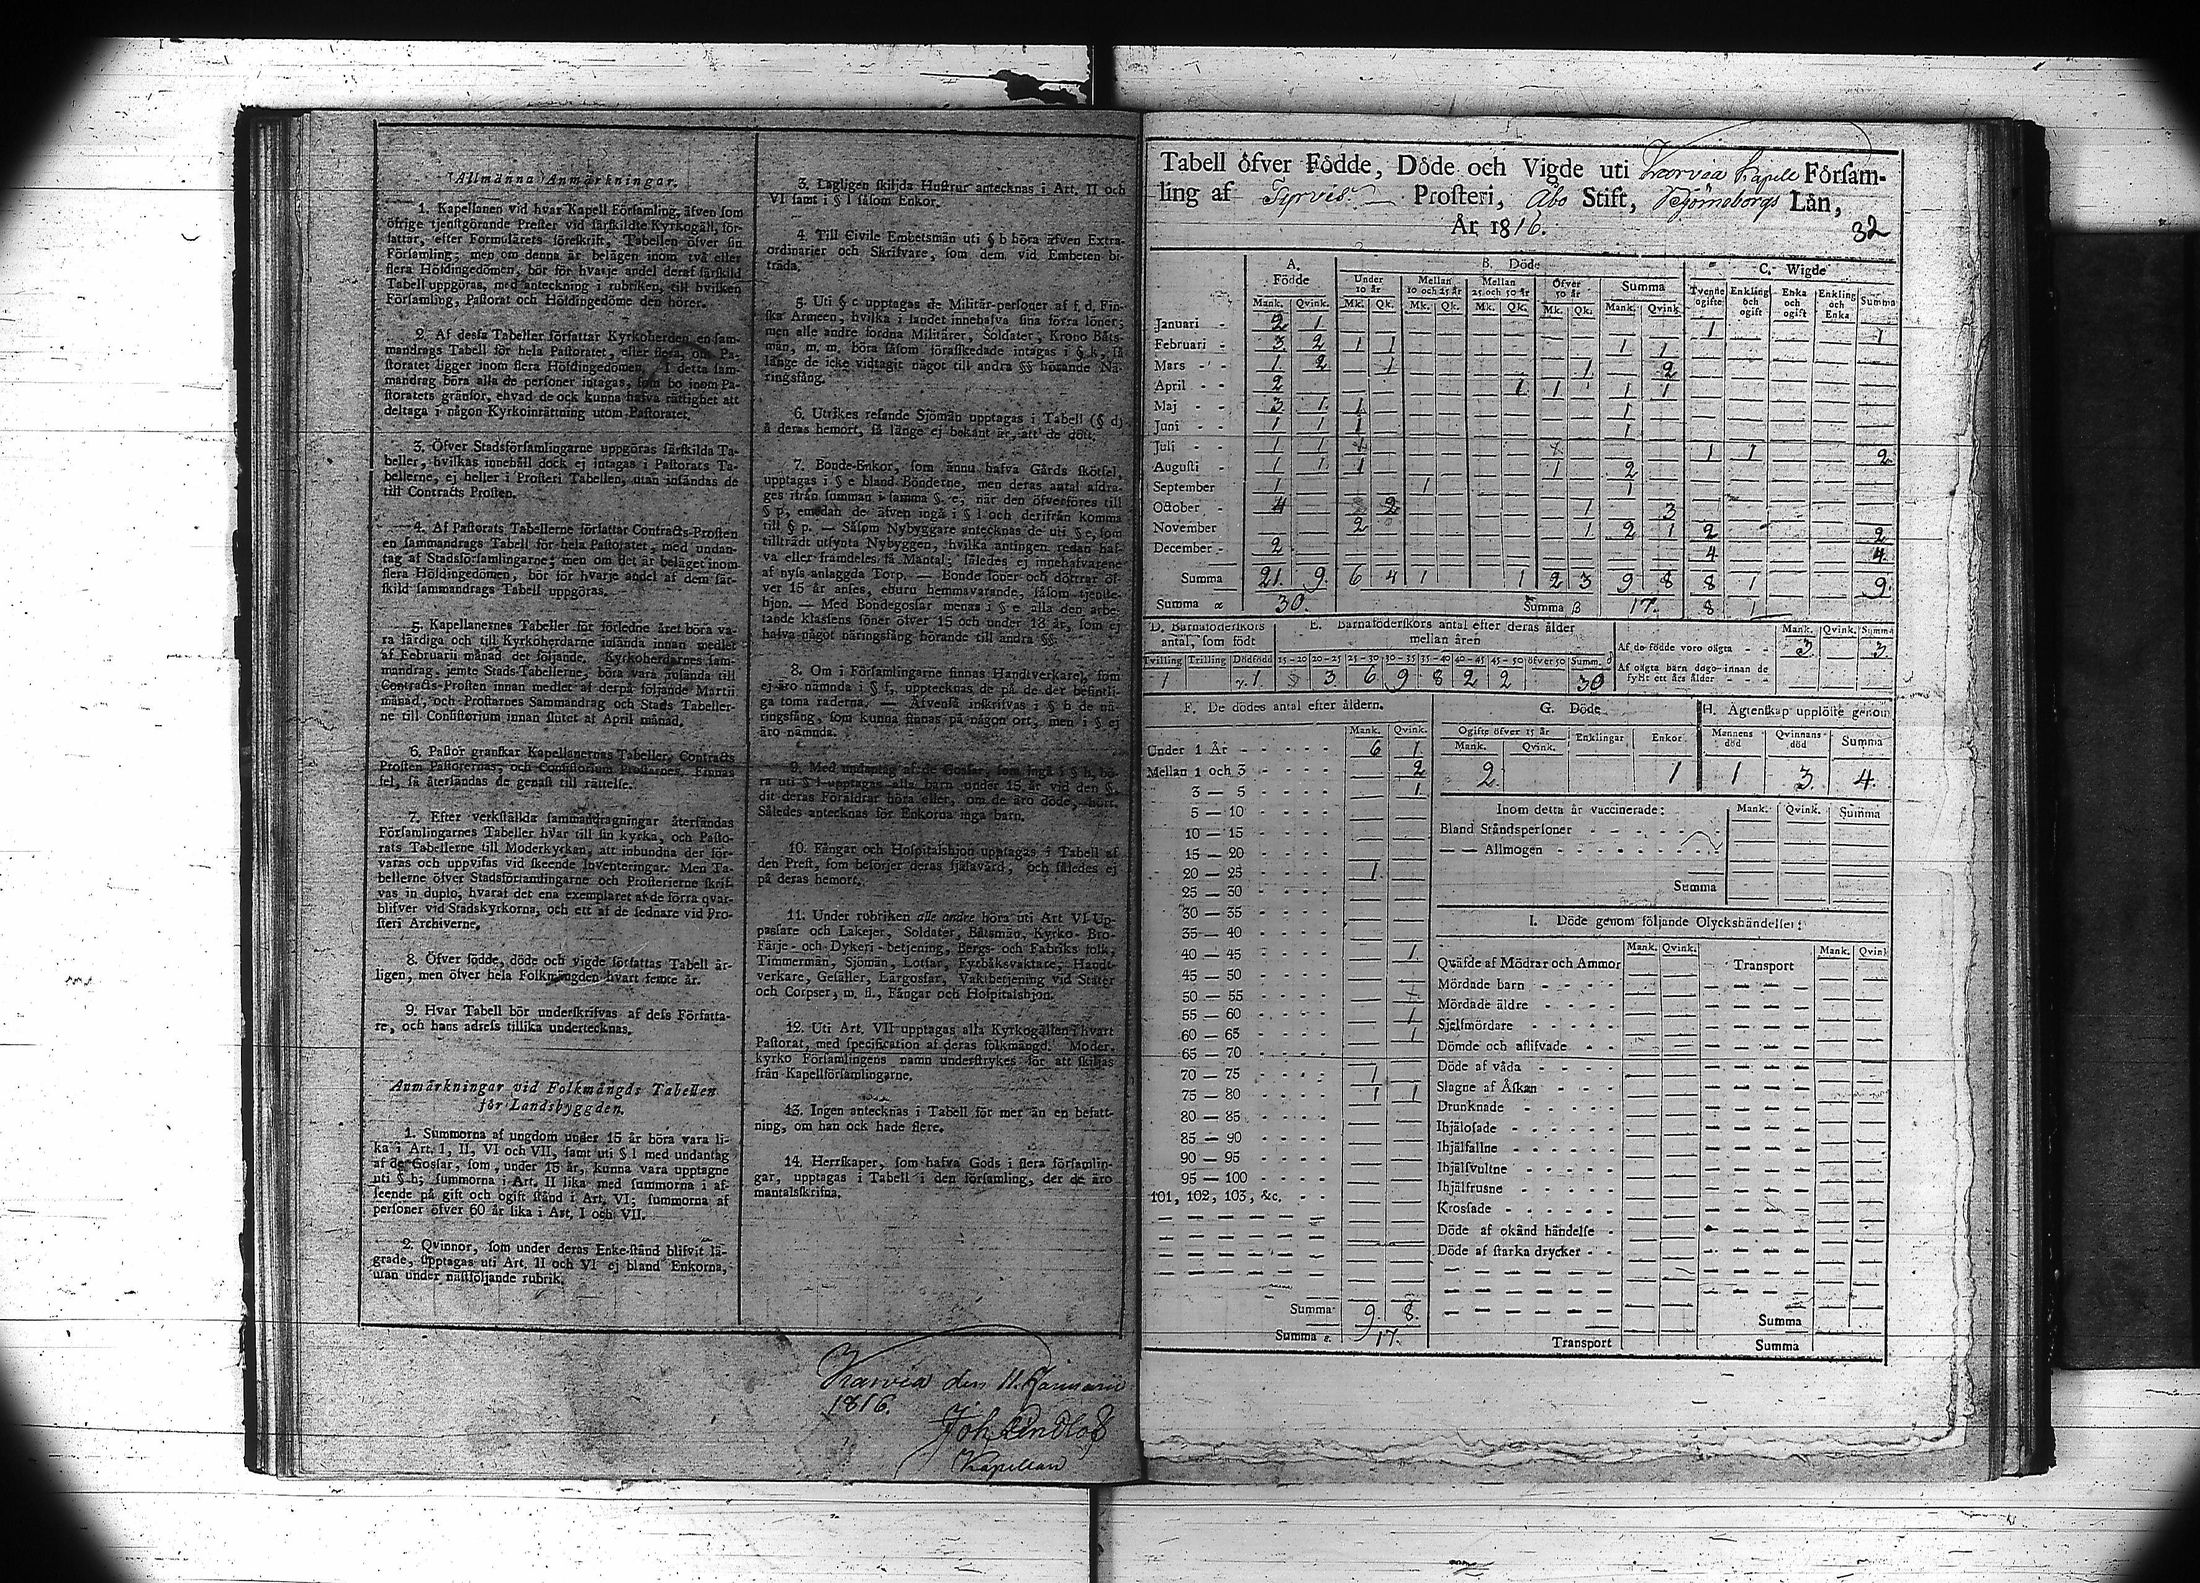 Allmänna Anmärkningar.
1. Kapellanen vid hvar Kapell Församling, äfven som
öfrige tjenstgörande Prester vid särskildte Kyrkogäll, för-
fattar, efter Formulärets föreskrift, Tabellen öfver sin
Församling; men om denna är belägen inom två eller
flera Höfdingedömen, bör för hvarje andel deraf särskild
Tabell uppgöras, med anteckning i rubriken, till hvilken
Församling, Pastorat och Höfdingedöme den hörer.
2. Af dessa Tabeller författar Kyrkoherden en sam-
mandrags Tabell för hela Pastoratet, eller flera, om Pa-
storatet ligger inom flera Höfdingedömen. I detta sam-
mandrag böra alla de personer intagas, som bo inom Pa-
storatets gränsor, ehvad de ock kunna hafva rättighet att
deltaga i någon Kyrkoinrättning utom Pastoratet.
3. Öfver Stadsförsamlingarne uppgöras särskilda Ta-
beller, hvilkas innehåll dock ej intagas i Pastorats Ta-
bellerne, ej heller i Prosteri Tabellen, utan insändas de
till Contracts Prosten.
4. Af Pastorats Tabellerne författar Contracts-Prosten
en sammandrags Tabell för hela Pastoratet, med undan-
tag af Stadsförsamlingarne; men om det är beläget inom
flera Höfdingedömen, bör för hvarje andel af dem sär-
skild sammandrags Tabell uppgöras.
5. Kapellanernes Tabeller för förledne året böra va-
ra färdiga och till Kyrkoherdarne insända innan medlet
af Februarii månad det följande. Kyrkoherdarnes sam-
mandrag, jemte Stads-Tabellerne, böra vara insända till
Contracts-Prosten innan medlet af derpå följande Martii
månad, och Prostarnes Sammandrag och Stads Tabeller-
ne till Consistorium innan slutet af April månad.
6. Pastor granskar Kapellanernas Tabeller, Contracts
Prosten Pastorernas, och Consistorium Prostarnes. Finnas
fel, så återsändas de genast till rättelse.
7. Efter verkställda sammandragningar återsändas
Församlingarnes Tabeller hvar till sin kyrka, och Pasto-
rats Tabellerne till Moderkyrkan, att inbundna der för-
varas och uppvisas vid skeende Inventeringar. Men Ta-
bellerne öfver Stadsförsamlingarne och Prosterierne skrif-
vas in duplo, hvaraf det ena exemplaret af de förra qvar-
blifver vid Stadskyrkorna, och ett af de sednare vid Pro-
steri Archiverne.
8. Öfver födde, döde och vigde författas Tabell år-
ligen, men öfver hela Folkmängden hvart femte år.
9. Hvar Tabell bör underskrifvas af dess Författa-
re, och hans adress tillika undertecknas.
Anmärkningar vid Folkmängds Tabellen
för Landsbyggden.
1. Summorna af ungdom under 15 år böra vara li-
ka i Art. I, II, VI och VII, samt uti § l med undantag
af de Gossar, som, under 15 år, kunna vara upptagne
uti § h; summorna i Art. II lika med summorna i af-
seende på gift och ogift stånd i Art. VI; summorna af
personer öfver 60 år lika i Art. I och VII.
2. Qvinnor, som under deras Enke-stånd blifvit lä-
grade, upptagas uti Art. II och VI ej bland Enkorna,
utan under nästföljande rubrik.
3. Lagligen skiljda Hustrur antecknas i Art. II och
VI samt i § l såsom Enkor.
4. Till Civile Embetsmän uti § b böra äfven Extra-
ordinarier och Skrifvare, som dem vid Embeten bi-
träda.
5. Uti § c upptagas de Militär-personer af f. d. Fin-
ska Armeen, hvilka i landet innehafva sina förra löner;
men alle andre fordna Militärer, Soldater, Krono Båts-
män, m. m. böra såsom förafskedade intagas i § k, så
länge de icke vidtagit något till andra §§ hörande Nä-
ringsfång.
6. Utrikes resande Sjömän upptagas i Tabell (§ d)
å deras hemort, så länge ej bekant är, att de dött.
7. Bonde-Enkor, som ännu hafva Gårds skötsel,
upptagas i § e bland Bönderne, men deras antal afdra-
ges ifrån summan i samma § e, när den öfverföres till
§ p, emedan de äfven ingå i § l och derifrån komma
till § p. — Såsom Nybyggare antecknas de uti § e, som
tillträdt utsynta Nybyggen, hvilka antingen redan haf-
va eller framdeles få Mantal; således ej innehafvarene
af nyss anlaggda Torp. — Bonde söner och döttrar öf-
ver 15 år anses, ehuru hemmavarande, såsom tjenste-
hjon. — Med Bondegossar menas i § e alla den arbe-
tande klassens söner öfver 15 och under 18 år, som ej
hafva något näringsfång hörande till andra §§.
8. Om i Församlingarne finnas Handtverkare, som
ej äro nämnda i § f, upptecknas de på de der befintli-
ga toma raderna. — Äfvenså inskrifvas i § h de nä-
ringsfång, som kunna finnas på någon ort, men i § ej
äro nämnda.
9. Med undantag af de Gossar, som ingå i § h, bö-
ra uti § l upptagas alla barn under 15 år vid den §,
dit deras Föräldrar höra eller, om de äro döde, hört.
Således antecknas för Enkorna inga barn.
10. Fångar och Hospitalshjon upptagas i Tabell af
den Prest, som besörjer deras själavård, och således ej
på deras hemort.
11. Under rubriken alle andre böra uti Art VI Up-
passare och Lakejer, Soldater, Båtsmän, Kyrko- Bro-
Färje- och Dykeri-betjening, Bergs- och Fabriks folk,
Timmermän, Sjömän, Lotsar, Fyrbåksvaktare, Handt-
verkare, Gesäller, Lärgossar, Vaktbetjening vid Stater
och Corpser, m. fl., Fångar och Hospitalshjon.
12. Uti Art. VII upptagas alla Kyrkogällen i hvart
Pastorat, med specification af deras folkmängd. Moder-
kyrko Församlingens namn understrykes för att skiljas
från Kapellförsamlingarne.
13. Ingen antecknas i Tabell för mer än en befatt-
ning, om han ock hade flere.
14. Herrskaper, som hafva Gods i flera församlin-
gar, upptagas i Tabell i den församling, der de äro
mantalsskrifna.
Karvia den 11 Januarii
1816.
Joh Lindlöf
Kapellan
Tabell öfver Födde, Döde och Vigde uti Karvia Kapell Församling
ling af Tyrvis Prosteri, Åbo Stift, Björneborgs Län,
År 1816. 32
A. Födde B. Döde C. Wigde
Under 10 år Mellan 10 och 25 år Mellan 25 och 50 år Öfver 50 år Summa Tvenne ogifte Enkling och ogift Enka och ogift Enkling och Enka Summa
Mank. Qvink. Mk. Qk. Mk. Qk. Mk. Qk. Mk. Qk. Mank. Qvink
Januari 2 1 1 1
Februari 3 2 1 1 1 1
Mars 1 2 1 1 2
April 2 1 1 1 1
Maj 3 1 1 1
Juni 1 1 1 1
Juli 1 1 1 1 2
Augusti 1 1 1 1 2
September 1 1 1
October 4 2 1 3
November 2 1 2 1 2 2
December 2 4 4
Summa 21 9 6 4 1 1 2 3 9 8 8 1 9
Summa α 30. Summa β 17. 8 1
D. Barnaföderskors antal, som födt
E. Barnaföderskors antal efter deras ålder mellan åren
Tvilling Trilling Dödfödd 15-20 20-25 25-30 30-35 35-40 40-45 45-50 öfver 50 Summ. δ
1 1. 3 6 9 8 2 2 30
Mank. Qvink. Summa
Af de födde voro oägta 3 3
Af oägta barn dogo innan de
fyllt ett års ålder
F. De dödes antal efter åldern.
Mank. Qvink.
Under 1 År 6 1
Mellan 1 och 3 2
3 — 5 1
5 — 10
10 — 15
15 — 20
20 — 25 1
25 — 30
30 — 35
35 — 40
40 — 45 1
45 — 50
50 — 55
55 — 60 1
60 — 65 1
65 — 70
70 — 75 1
75 — 80 1 1
80 — 85
85 — 90
90 — 95
95 — 100
101, 102, 103, &c.
Summa 9. 8.
Summa ε. 17.
G. Döde
Ogifte öfver 15 år Enklingar Enkor
Mank. Qvink.
2 1
H. Ägtenskap upplöste genom
Mannens död Qvinnans död Summa
1 3 4
Inom detta år vaccinerade: Mank. Qvink. Summa
Bland Ståndspersoner
— — Allmogen
Summa
I. Döde genom följande Olyckshändelser:
Mank. Qvink. Mank. Qvink
Qväfde af Mödrar och Ammor Transport
Mördade barn
Mördade äldre
Sjelfmördare
Dömde och aflifvade
Döde af våda
Slagne af Åskan
Drunknade
Ihjälosade
Ihjälfallne
Ihjälsvultne
Ihjälfrusne
Krossade
Döde af okänd händelse
Döde af starka drycker
Summa
Transport Summa